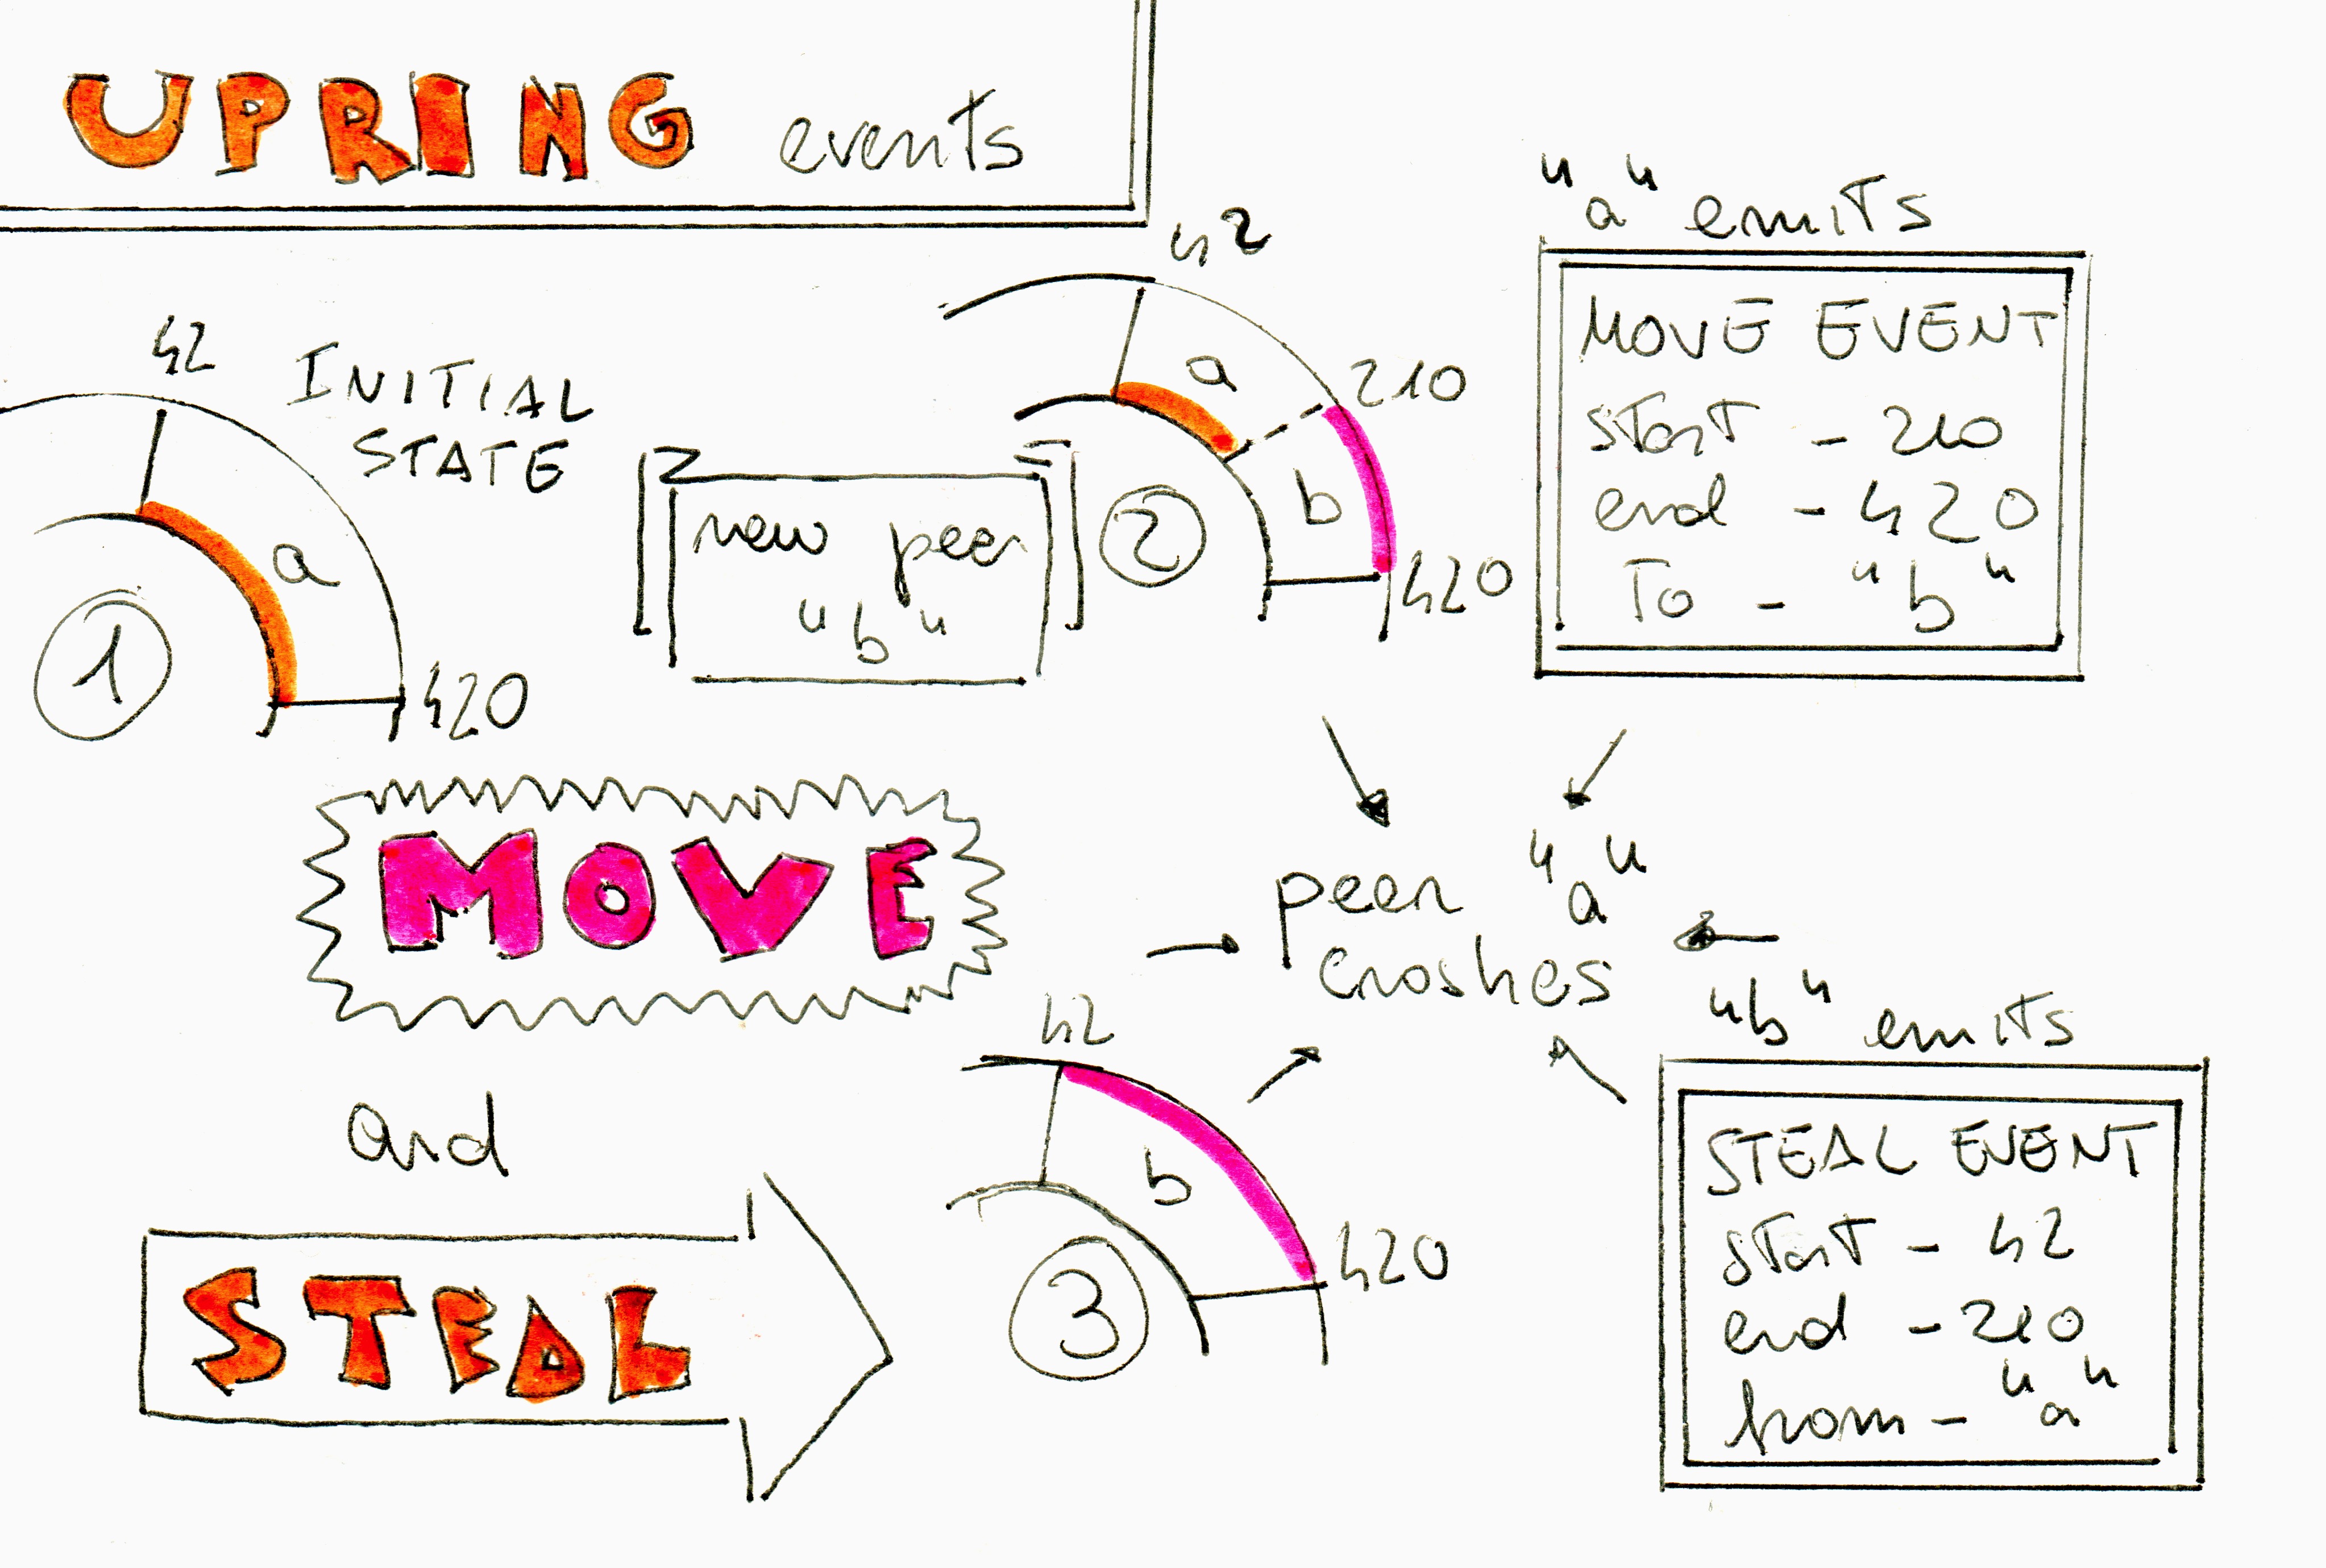 UPRING events
42
INITIAL
STATE
a
1
420
new peer
"b"
42
a
210
b
2
420
"a" emits
MOVE EVENT
start - 210
end - 420
To - "b"
MOVE
and
STEAL
peer "a"
crashes
42
b
3
420
"b" emits
STEAL EVENT
start - 42
end - 210
from - "a"